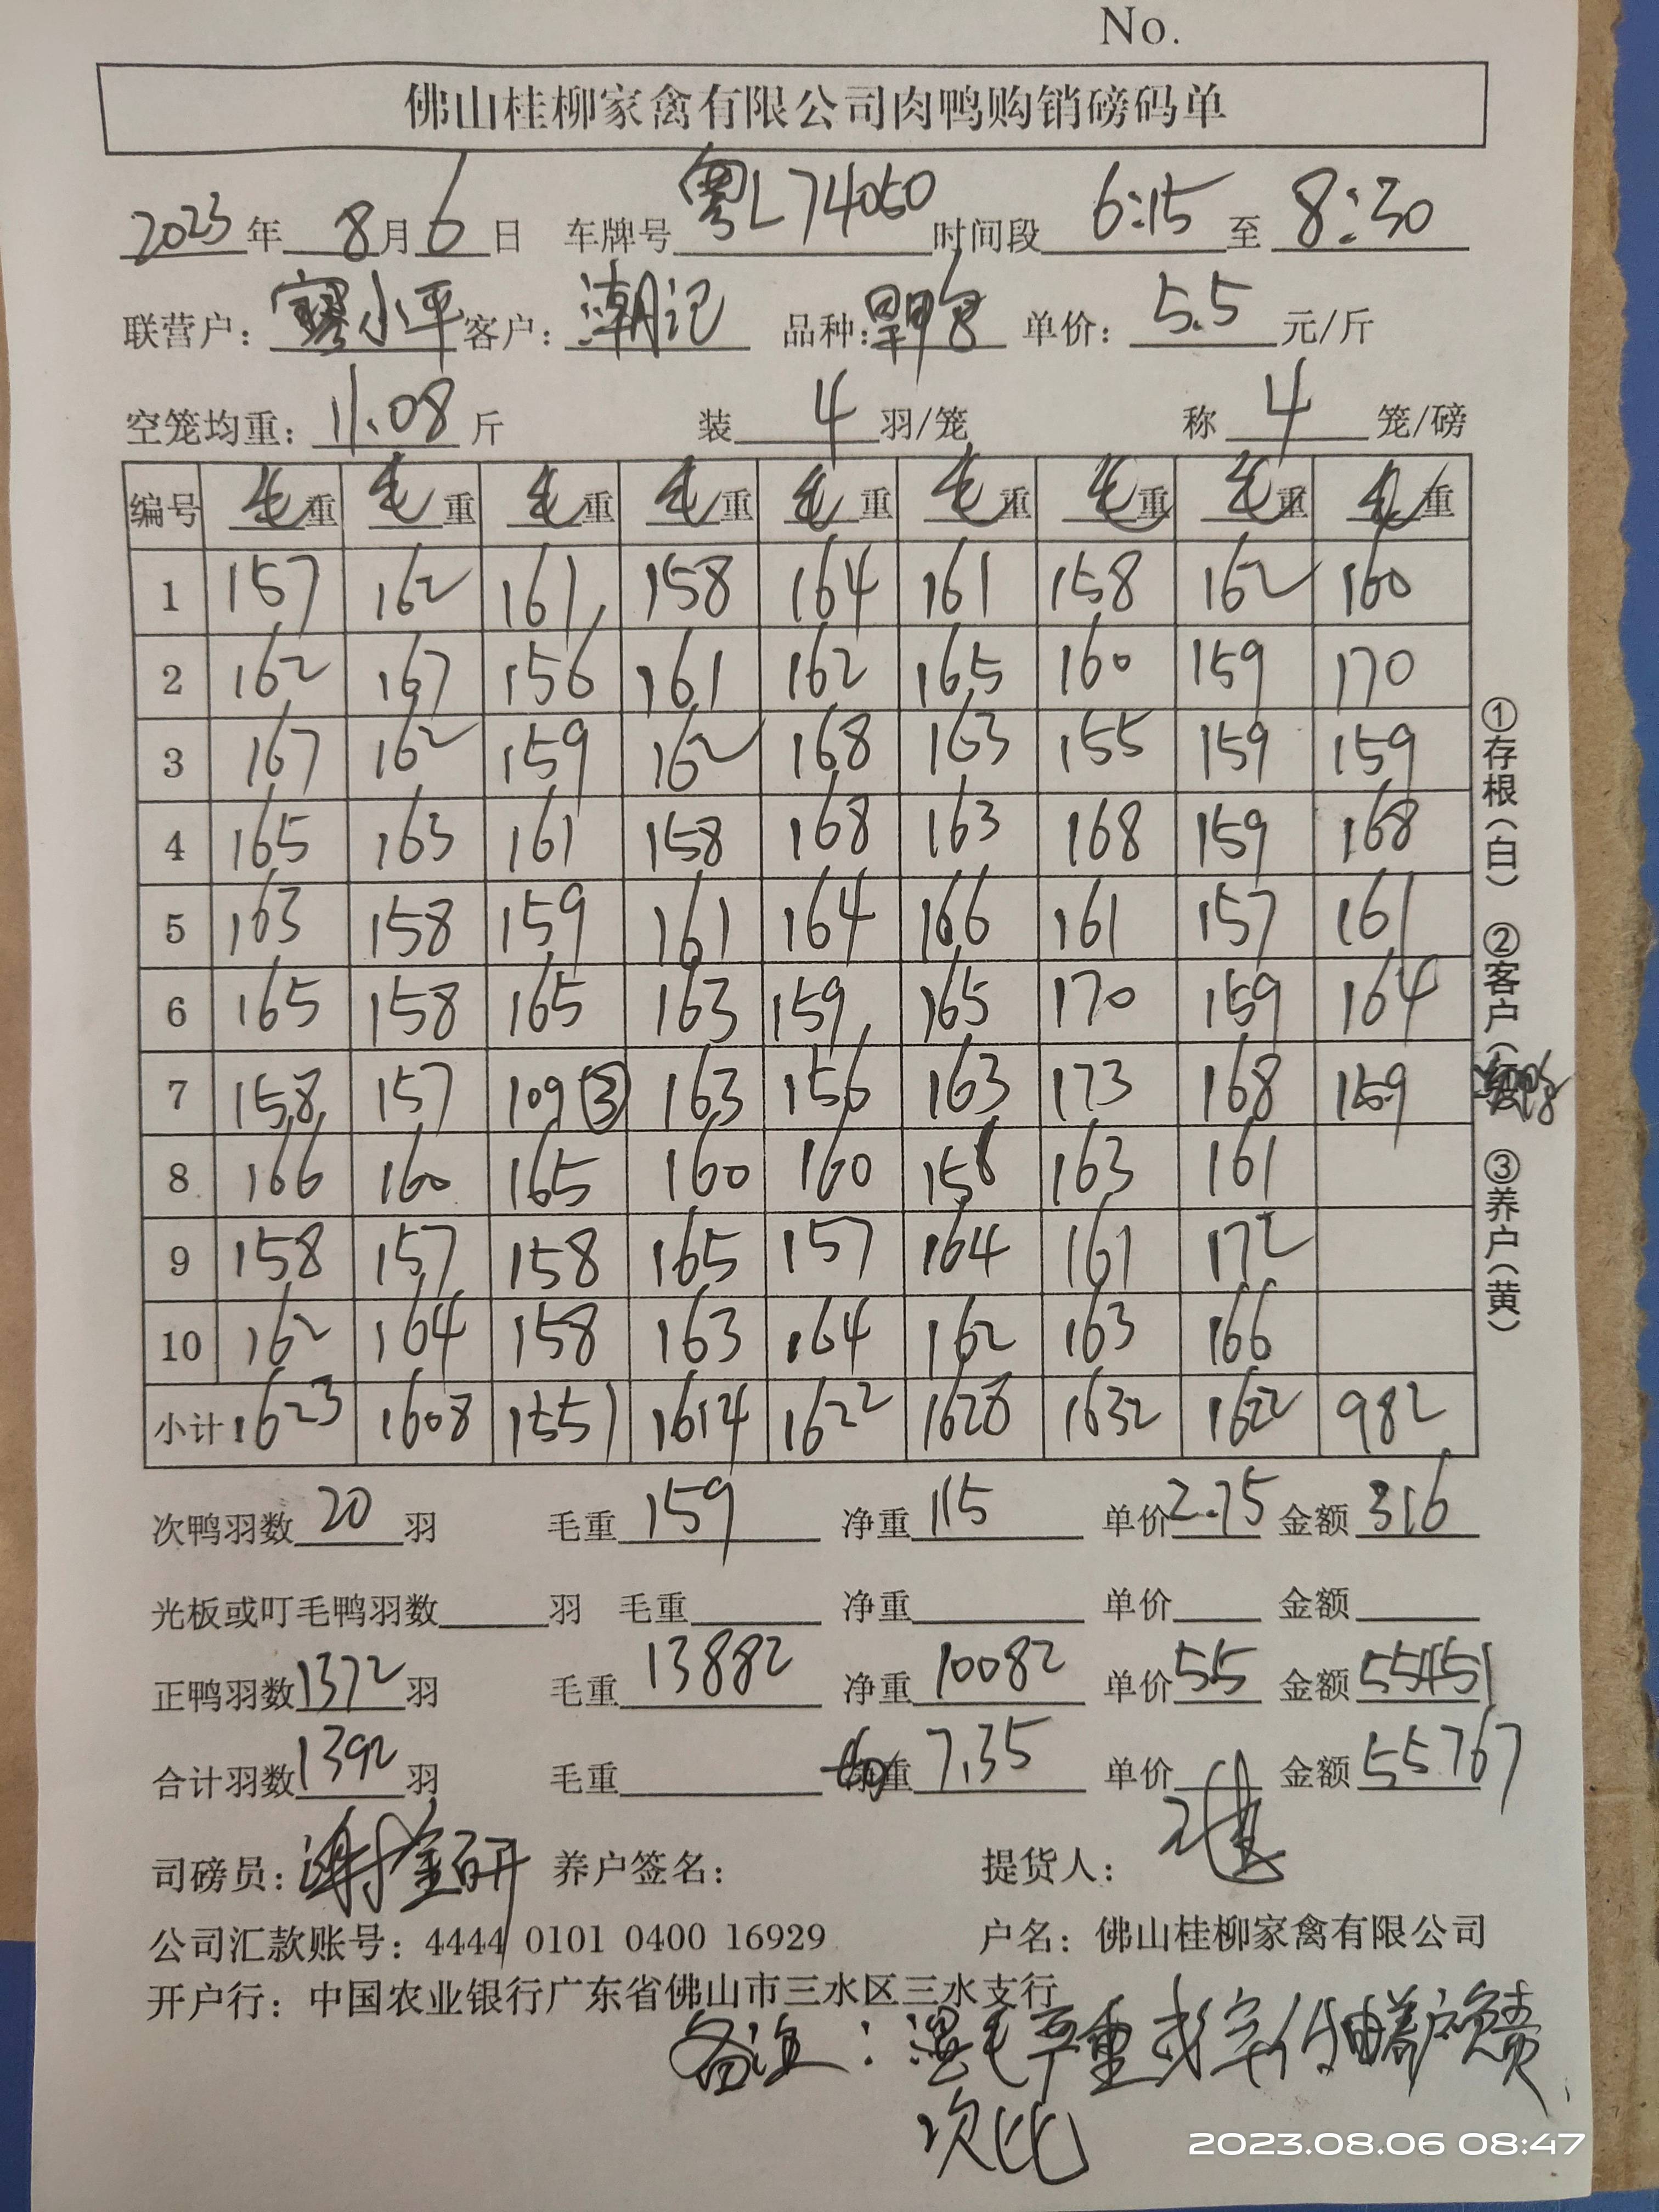 No.
佛山桂柳家禽有限公司肉鸭购销磅码单
2023年 8月6日 车牌号 粤L74050 时间段 6:15 至 8:30
联营户: 廖小平 客户: 潮记 品种: 旱鸭 单价: 5.5 元/斤
空笼均重: 11.08 斤 装 4 羽/笼 称 4 笼/磅
编号 毛重 毛重 毛重 毛重 毛重 毛重 毛重 毛重 毛重
1 157 162 161 158 164 161 158 162 160
2 162 167 156 161 162 165 160 159 170
3 167 162 159 162 168 163 155 159 159
4 165 163 161 158 168 163 168 159 168
5 163 158 159 161 164 166 161 157 161
6 165 158 165 163 159 165 170 159 164
7 158 157 109③ 163 156 163 173 168 159
8 166 160 165 160 160 156 163 161
9 158 157 158 165 157 164 161 172
10 162 164 158 163 164 162 163 166
小计 1623 1608 1551 1614 1622 1628 1632 1622 982
①存根(白) ②客户( ③养户(黄)
次鸭羽数 20 羽 毛重 159 净重 115 单价 2.75 金额 316
光板或叮毛鸭羽数 羽 毛重 净重 单价 金额
正鸭羽数 1372 羽 毛重 13882 净重 10082 单价 5.5 金额 55451
合计羽数 1392 羽 毛重 重 7.35 单价 金额 55767
司磅员: 谢金研 养户签名: 提货人:
公司汇款账号: 4444 0101 0400 16929 户名: 佛山桂柳家禽有限公司
开户行: 中国农业银行广东省佛山市三水区三水支行
备注: 湿毛严重 由养户负责
次比
2023.08.06 08:47